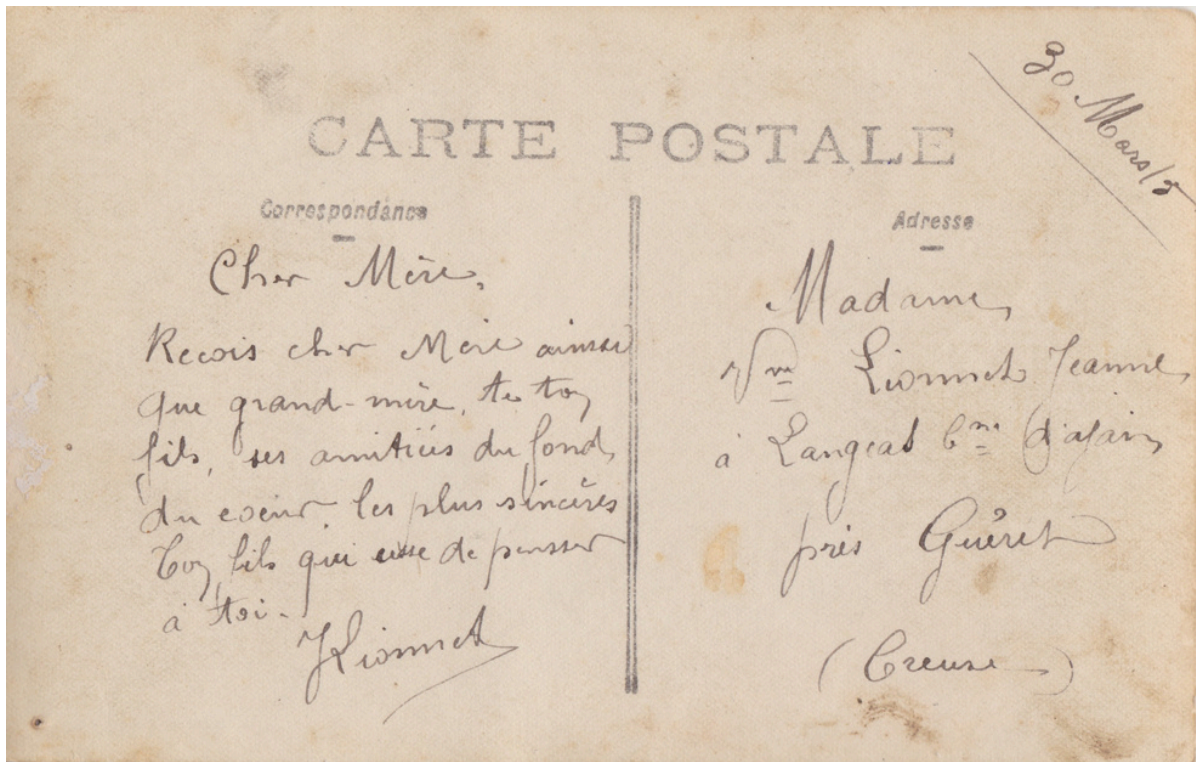 30 Mars 15
CARTE POSTALE
Correspondance
Adresse
Cher Mère,
Recois cher Mère ainsi
que grand-mère, de ton
fils, ses amitiés du fond
du coeur, les plus sincères
Ton fils qui de pensser
à toi.
JLionnet
Madame
Vve Lionnet Jeanne
à Langeat Cne d'ajain
près Guéret
(Creuse)